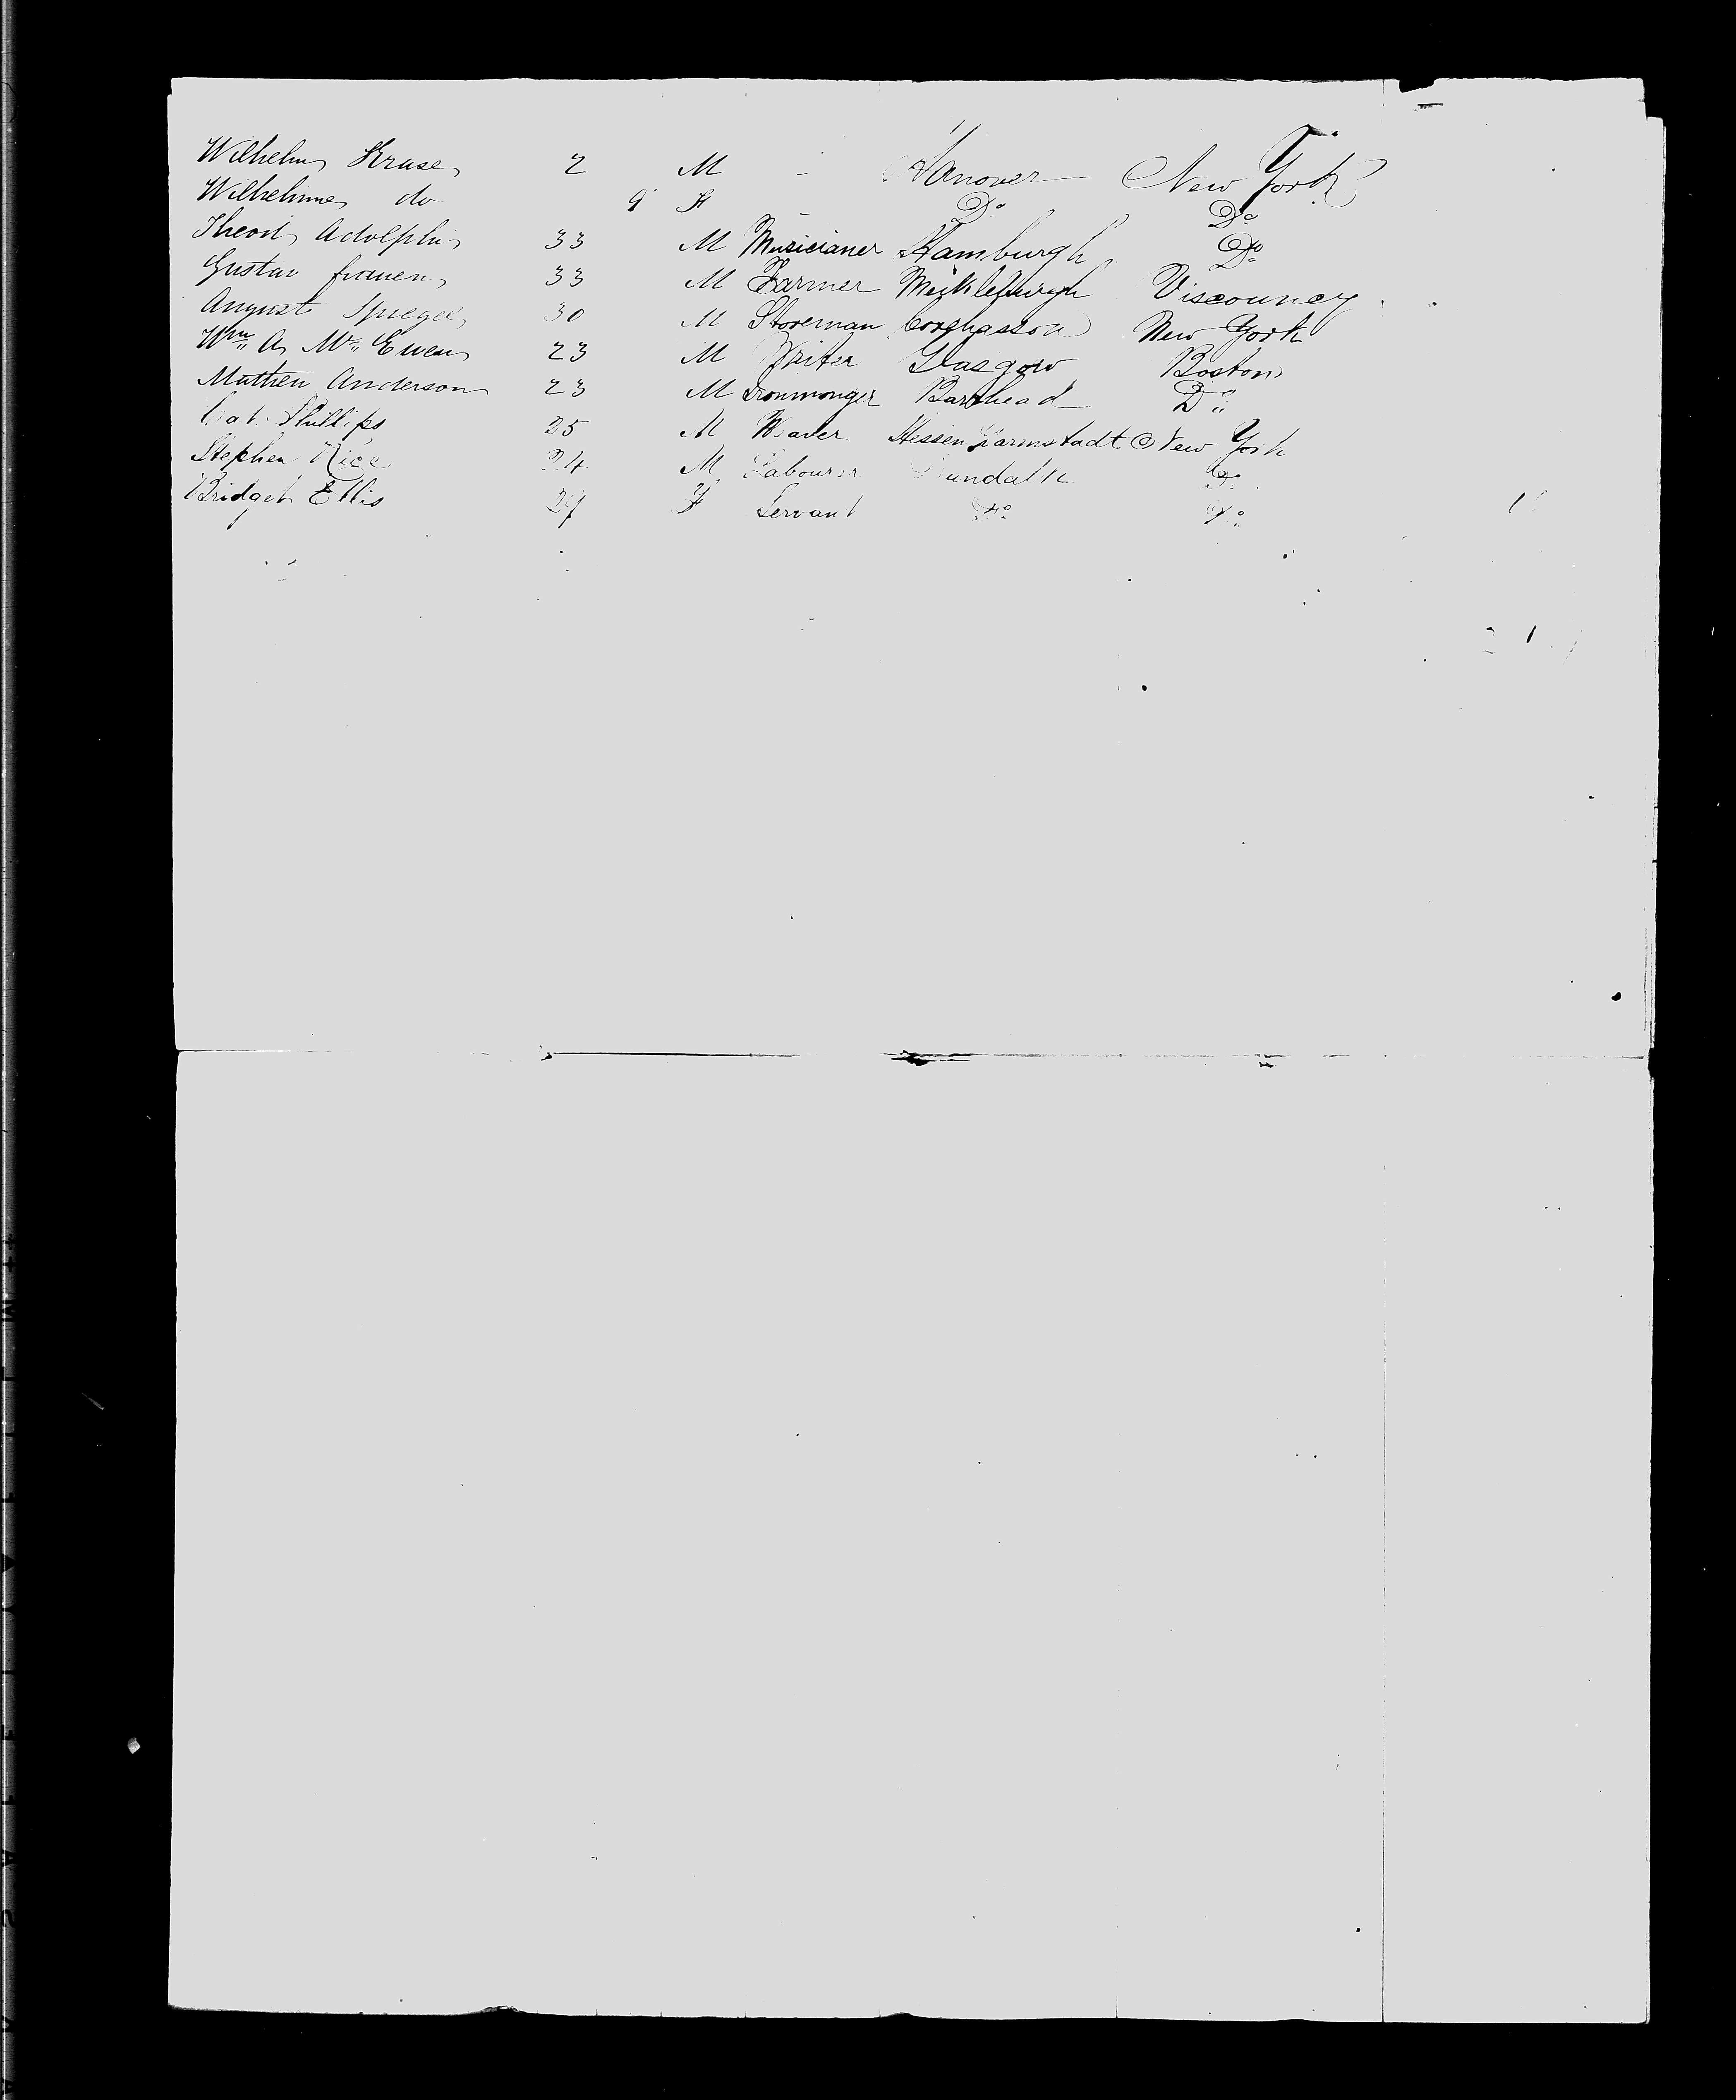 Wilhelm Kruse 2 M - Hanover New York
Wilhelmine do 9 F - Do Do
Theod Adolphi 33 M Musicianer Hamburgh Do
Gustav 33 M Farmer Meckleburgh Viscouncy
August Spiegel 30 M Storeman New York
Wm A Mc Ewen 23 M Writer Glasgow Boston
Mathew Anderson 23 M Ironmonger Barrhead Do
Phillips 35 M Weaver Hessen Darmstadt New York
Stephen Rice 24 M Labourer Dundalk Do
Bridget Ellis F Servant Do Do